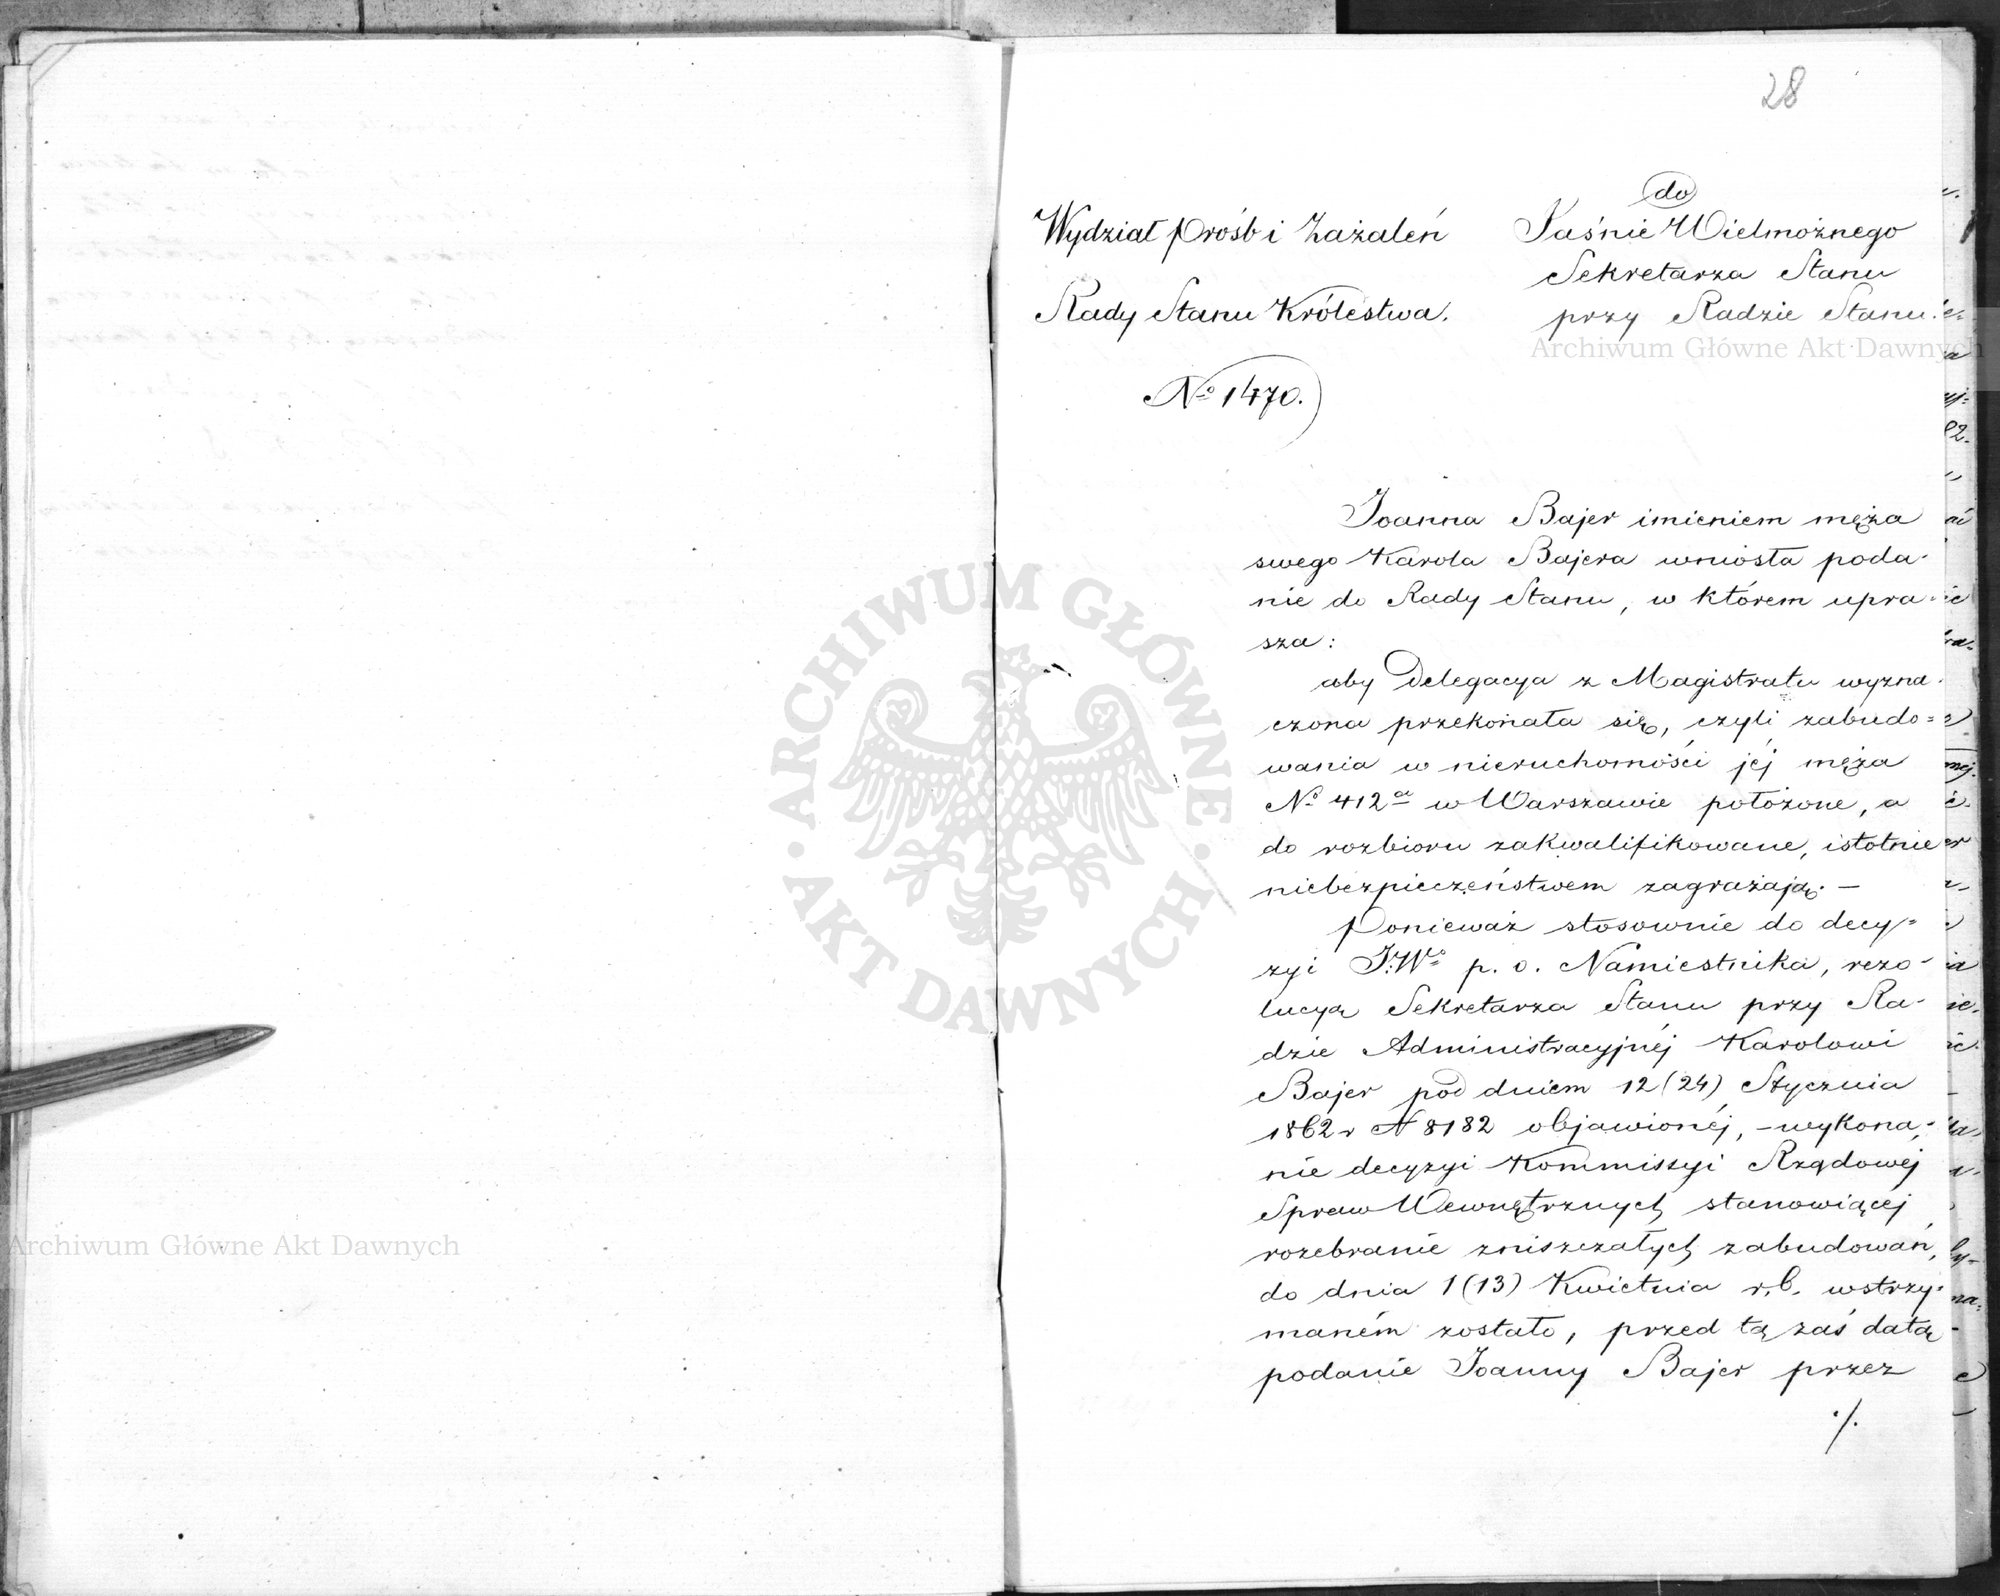 28
Wydział Próśb i Zażaleń
Rady Stanu Królestwa.
№ 1470.
do
Jaśnie Wielmożnego
Sekretarza Stanu
przy Radzie Stanu.
Archiwum Główne Akt Dawnych
Joanna Bajer imieniem męża
swego Karola Bajera wniosła poda-
nie do Rady Stanu, w którem upra-
sza:
aby Delegacya z Magistratu wyzna-
czona przekonała się, czyli zabudo=
wania w nieruchomości jéj męża
№ 412a w Warszawie położone, a
do rozbioru zakwalifikowane, istotnie
niebezpieczeństwem zagrażają. —
Ponieważ stosownie do decy=
zyi J.Wo p. o. Namiestnika, rezo-
lucyą Sekretarza Stanu przy Ra-
dzie Administracyjnéj Karolowi
Bajer pod dniem 12 (24) Stycznia
1862 r N 8182 objawionéj, – wykona-
nie decyzyi Kommissyi Rządowéj
Spraw Wewnętrznych stanowiącéj
rozebranie zniszczałych zabudowań,
do dnia 1 (13) Kwietnia r. b. wstrzy-
maném zostało, przed tą zaś datą
podanie Joanny Bajer przez
./.
ARCHIWUM GŁÓWNE
AKT DAWNYCH
Archiwum Główne Akt Dawnych